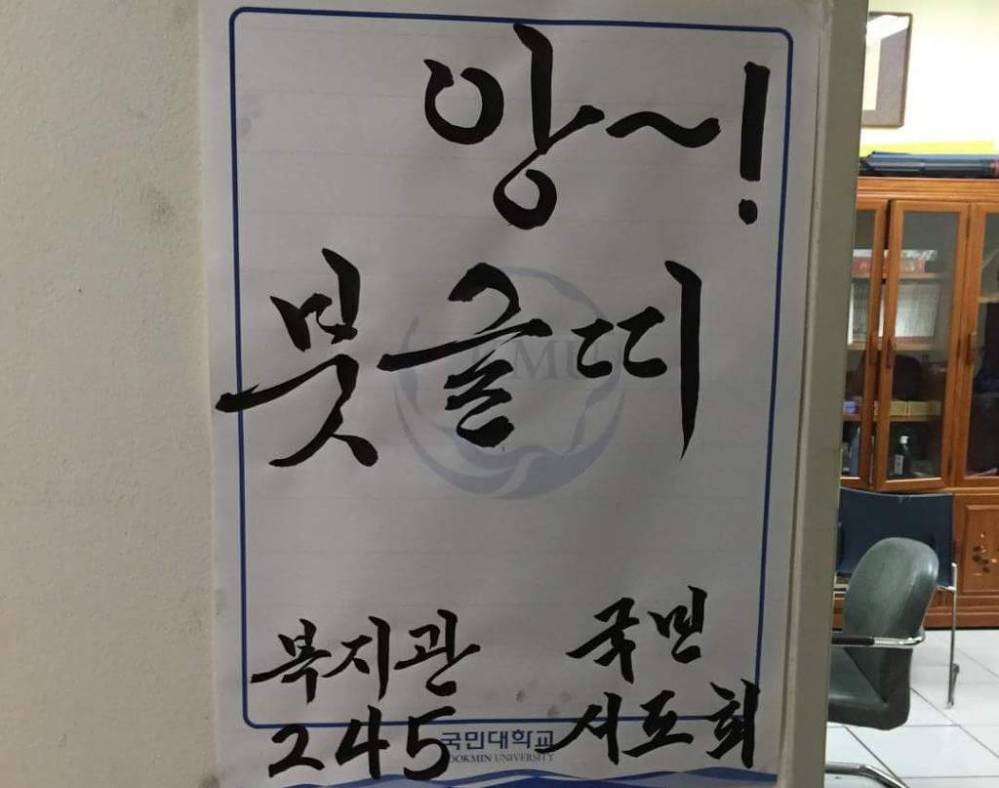 앙~!
붓글띠
복지관 국민
245 서도회
KMU
국민대학교
KOOKMIN UNIVERSITY